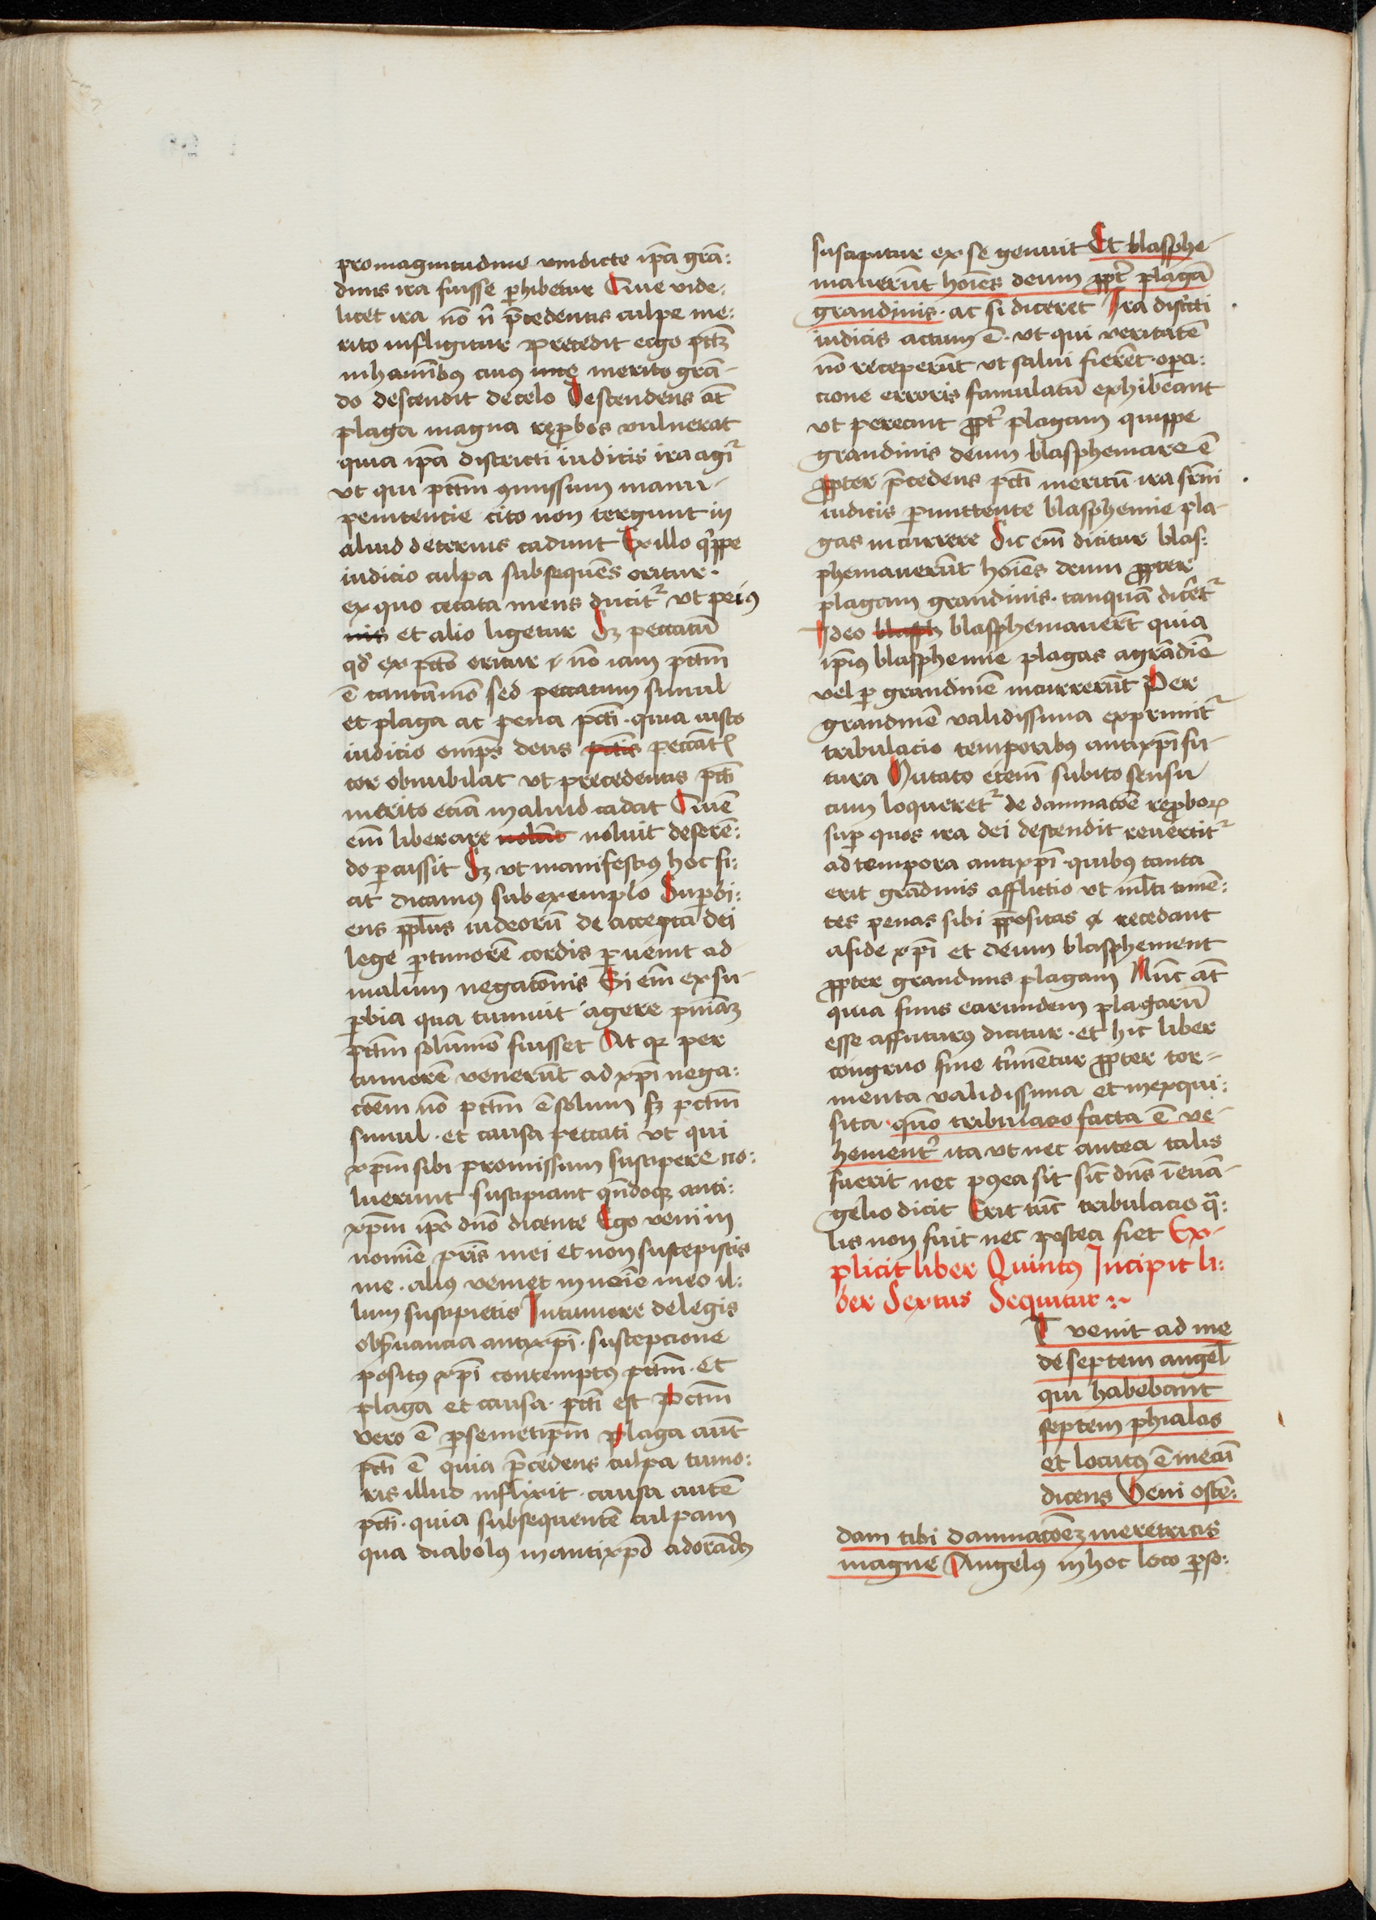 pro magnitudine vindicte ip̄a grā:
dinis ira fuisse ꝑhibetur Que vide:
licet ira nō n̄ p̄cedentis culpe me:
rito infligitur precedit ergo pctm̄
in hoīnibꝰ cuiꝰ merito grā-
do descendit de celo Descendens at̄
plaga magna reꝓbos vulnerat
quia ip̄a districti iudicis ira agit᷑
vt qui pctm̄ ꝯmissum manu-
penitencie cito non tergunt in
aliud deterius cadunt Ex illo quippe
iudicio culpa subsequēs oritur·
ex quo cecata mens ducit᷑ vt peiꝰ
et alio ligetur Sꝫ peccatū
qd̄ ex pctō oritur nō iam pctm̄
ē tantūmō sed peccatum simul
et plaga ac pena pcti· quia iusto
iudicio omps̄ deus peccātꝭ
cor obnubilat vt precedentis pcti
merito eciā in aliud cadat Quē
em̄ liberare noluit deserē:
do ꝑcussit Sꝫ vt manifestiꝰ hoc fi:
at dicamus sub exemplo Suꝑbi:
ens ppl̄us iudeorū de accepta dei
lege ꝑ tumorē cordis ꝑuenit ad
malum negatōnis Si em̄ ex su-
ꝑbia qua tumuit agere pn̄iāꝫ
pctm̄ solūmō fuisset At qꝛ per
tumorē venerūt ad xp̄i nega:
cōem nō pctm̄ ē solum sꝫ pctm̄
simul· et causa peccati vt qui
xp̄m sibi promissum suscipere no:
luerunt suscipiant qn̄doqꝫ anti:
xp̄m ip̄o dn̄o dicente Ego veni in
nomīe pr̄is mei et non suscepistis
me· aliꝰ veniet in noīe meo il:
lum suscipietis In tumore de legis
obẜuancia antixp̄i· suscepcione
positꝰ xp̄i contemptꝰ pctm̄· et
plaga et causa· pcti est Pctm̄
vero ē ꝑ semetip̄m Plaga aut̄
pcti ē quia p̄cedens culpa tumo:
ris illud inflixit· causa autē
pcti· quia subsequentē culpam
qua diabolꝰ in antixp̄o adorādꝰ
suscipitur ex se genuit Et blasphe-
mauerūt hoīes deum ꝓpt̄ plagā
grandinis· ac si diceret Ira districti
iudicis actum ē· vt qui veritatē
nō receperūt vt salui fierēt· opa:
cione erroris famulatū exhibeant
vt pereant ꝓpt̄ plagam quippe
grandinis deum blasphemare ē
ꝓpter p̄cedens pcti meritū· ira
iudicis ꝑmittente blasphemie pla-
gas incurrere Sic em̄ dicitur blas:
phemauerūt hoīes deum ꝓpter
plagam grandinis· tanquā dicēt᷑
Ideo blasphemauerūt quia
ip̄iꝰ blasphemie plagas a grādīe
vel ꝑ grandinē incurrerūt Per
grandinē validissima exprimit᷑
tribulacio temporibꝰ antixp̄i fu-
tura Mutato etenī subito sensu
cum loqueret᷑ de damnacōe reꝓboꝝ
suꝑ quos ira dei descendit reuertit᷑
ad tempora antixp̄i· quibꝰ tanta
erit grādinis afflictio vt ml̄ti timē:
tes penas sibi ꝓpositas recedant
a fide xp̄i et deum blasphement
ꝓpter grandinis plagam Nūc at̄
quia finis earundem plagarū
esse affuturꝰ dicitur· et hic liber
congruo fine t̓mīetur ꝓpter tor-
menta validissima et inexqui:
sita· qm̄o tribulacio facta ē ve-
hement᷑ ita vt nec antea talis
fuerit nec pꝰea sit sic̄ dn̄s ī euā-
gelio dicit Erit tūc tribulacio q̄:
lis non fuit nec postea fiet Ex-
plicit liber Quintꝰ Incipit li:
ber Sextus Sequitur :~
T venit ad me
de septem angel̄
qui habebant
septem phialas
et locutꝰ ē mecū
dicens Veni ostē:
dam tibi damnacōeꝫ meretricis
magne Angelꝰ in hoc loco ꝑso: